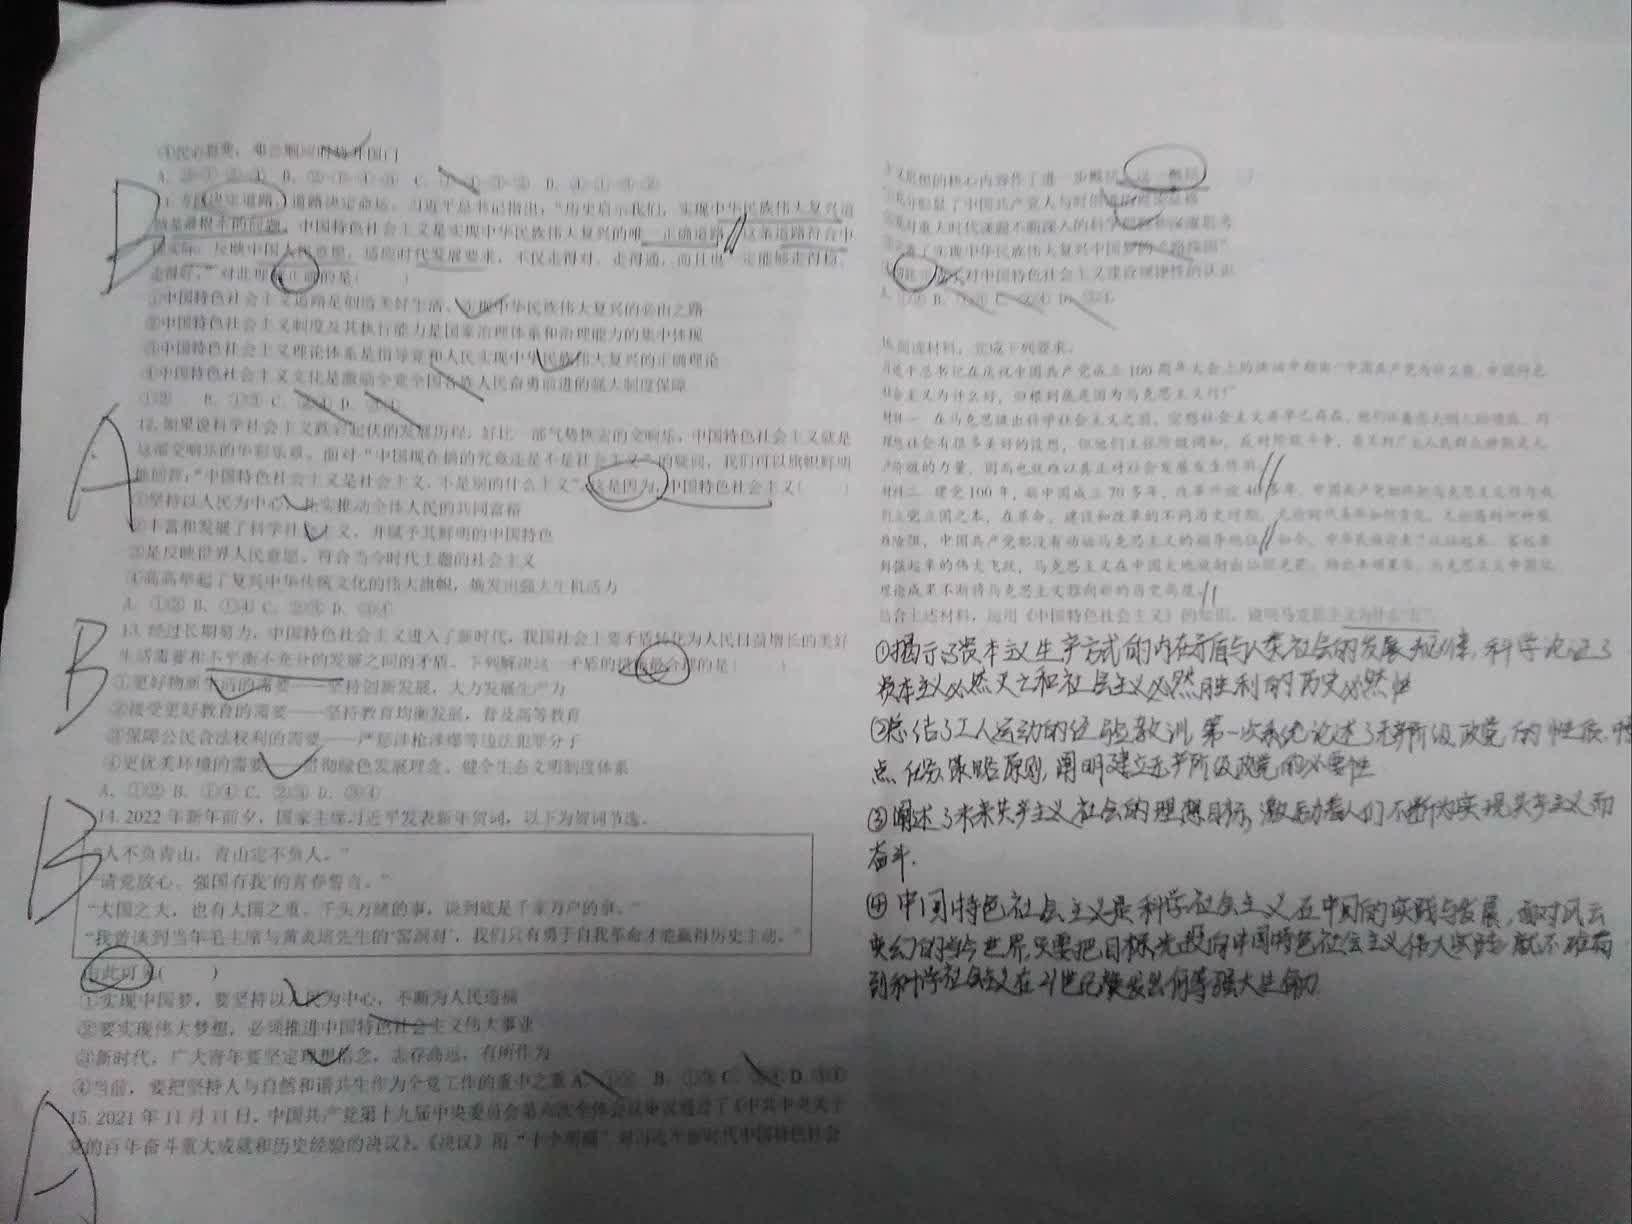 ④民心
A. B. C. D.
B
道路决定命运。习近平总书记指出："历史启示我们，实现中华民族伟大复兴道
路是最根本的问题。中国特色社会主义是实现中华民族伟大复兴的唯一正确道路。这条道路符合中
国实际、反映中国人民意愿、适应时代发展要求，不仅走得对、走得通，而且也一定能够走得稳、
走得好。"对此理解正确的是（ ）
①中国特色社会主义道路是创造美好生活、实现中华民族伟大复兴的必由之路
②中国特色社会主义制度及其执行能力是国家治理体系和治理能力的集中体现
③中国特色社会主义理论体系是指导党和人民实现中华民族伟大复兴的正确理论
④中国特色社会主义文化是激励全党全国各族人民奋勇前进的强大制度保障
①② B. ①③ C. ②④ D. ③④
A
12. 如果说科学社会主义跌宕起伏的发展历程，好比一部气势恢宏的交响乐，中国特色社会主义就是
这部交响乐的华彩乐章。面对"中国现在搞的究竟还是不是社会主义"的疑问，我们可以旗帜鲜明
地回答："中国特色社会主义是社会主义，不是别的什么主义"。这是因为，中国特色社会主义（ ）
①坚持以人民为中心，扎实推动全体人民的共同富裕
②丰富和发展了科学社会主义，并赋予其鲜明的中国特色
③是反映世界人民意愿、符合当今时代主题的社会主义
④高高举起了复兴中华传统文化的伟大旗帜，焕发出强大生机活力
A. ①② B. ①④ C. ②③ D. ③④
B
13. 经过长期努力，中国特色社会主义进入了新时代，我国社会主要矛盾转化为人民日益增长的美好
生活需要和不平衡不充分的发展之间的矛盾。下列解决这一矛盾的措施最合理的是（ ）
①更好物质生活的需要——坚持创新发展，大力发展生产力
②接受更好教育的需要——坚持教育均衡发展，普及高等教育
③保障公民合法权利的需要——严惩涉枪涉爆等违法犯罪分子
④更优美环境的需要——贯彻绿色发展理念，健全生态文明制度体系
A. ①② B. ①④ C. ②③ D. ③④
B
14. 2022 年新年前夕，国家主席习近平发表新年贺词，以下为贺词节选。
"人不负青山，青山定不负人。"
"'请党放心、强国有我'的青春誓言。"
"大国之大，也有大国之重。千头万绪的事，说到底是千家万户的事。"
"我曾谈到当年毛主席与黄炎培先生的'窑洞对'，我们只有勇于自我革命才能赢得历史主动。"
由此可见（ ）
①实现中国梦，要坚持以人民为中心，不断为人民造福
②要实现伟大梦想，必须推进中国特色社会主义伟大事业
③新时代，广大青年要坚定理想信念，志存高远，有所作为
④当前，要把坚持人与自然和谐共生作为全党工作的重中之重 A. ①② B. ①③ C. ②④ D. ③④
A
15. 2021 年 11 月 11 日，中国共产党第十九届中央委员会第六次全体会议审议通过了《中共中央关于
党的百年奋斗重大成就和历史经验的决议》。《决议》用"十个明确"对习近平新时代中国特色社会
主义思想的核心内容作了进一步概括。这一概括
①彰显了中国共产党人与时俱进的理论品格
对重大时代课题不断深入的科学 和深邃思考
了实现中华民族伟大复兴中国梦的"路线图"
对中国特色社会主义建设规律性的认识
A. ①② B. C. D. ③④
16. 阅读材料，完成下列要求。
习近平总书记在庆祝中国共产党成立 100 周年大会上的讲话中指出"中国共产党为什么能，中国特色
社会主义为什么好，归根到底是因为马克思主义行！"
材料一 在马克思提出科学社会主义之前，空想社会主义者早已存在，
理想社会有很多美好的设想，但他们主张阶级调和，反对阶级斗争，
产阶级的力量，因而也就难以真正对社会发展发生作用。
材料二 建党 100 年，新中国成立 70 多年，改革开放 40 多年，中国共产党始终把马克思主义作为我
们立党立国之本，在革命、建设和改革的不同历史时期，
难险阻，中国共产党都没有动摇马克思主义的指导地位。如今，中华民族迎来了从站起来、富起来
到强起来的伟大飞跃，马克思主义在中国大地
理论成果不断将马克思主义推向新的历史高度。
结合上述材料，运用《中国特色社会主义》的知识，说明马克思主义为什么"行"。
①揭示了资本主义生产方式的内在矛盾与人类社会的发展规律，科学论证了
资本主义必然灭亡和社会主义必然胜利的历史必然性
②总结了工人运动的经验教训，第一次系统论述了无产阶级政党的性质，特
点，任务，策略原则，阐明建立无产阶级政党的必要性
③阐述了未来共产主义社会的理想目标，激励着人们不断为实现共产主义而
奋斗.
④中国特色社会主义是科学社会主义在中国的实践与发展，面对风云
变幻的当今世界，只要把目标光投向中国特色社会主义伟大实践，就不难看
到科学社会主义在21世纪焕发出何等强大生命力